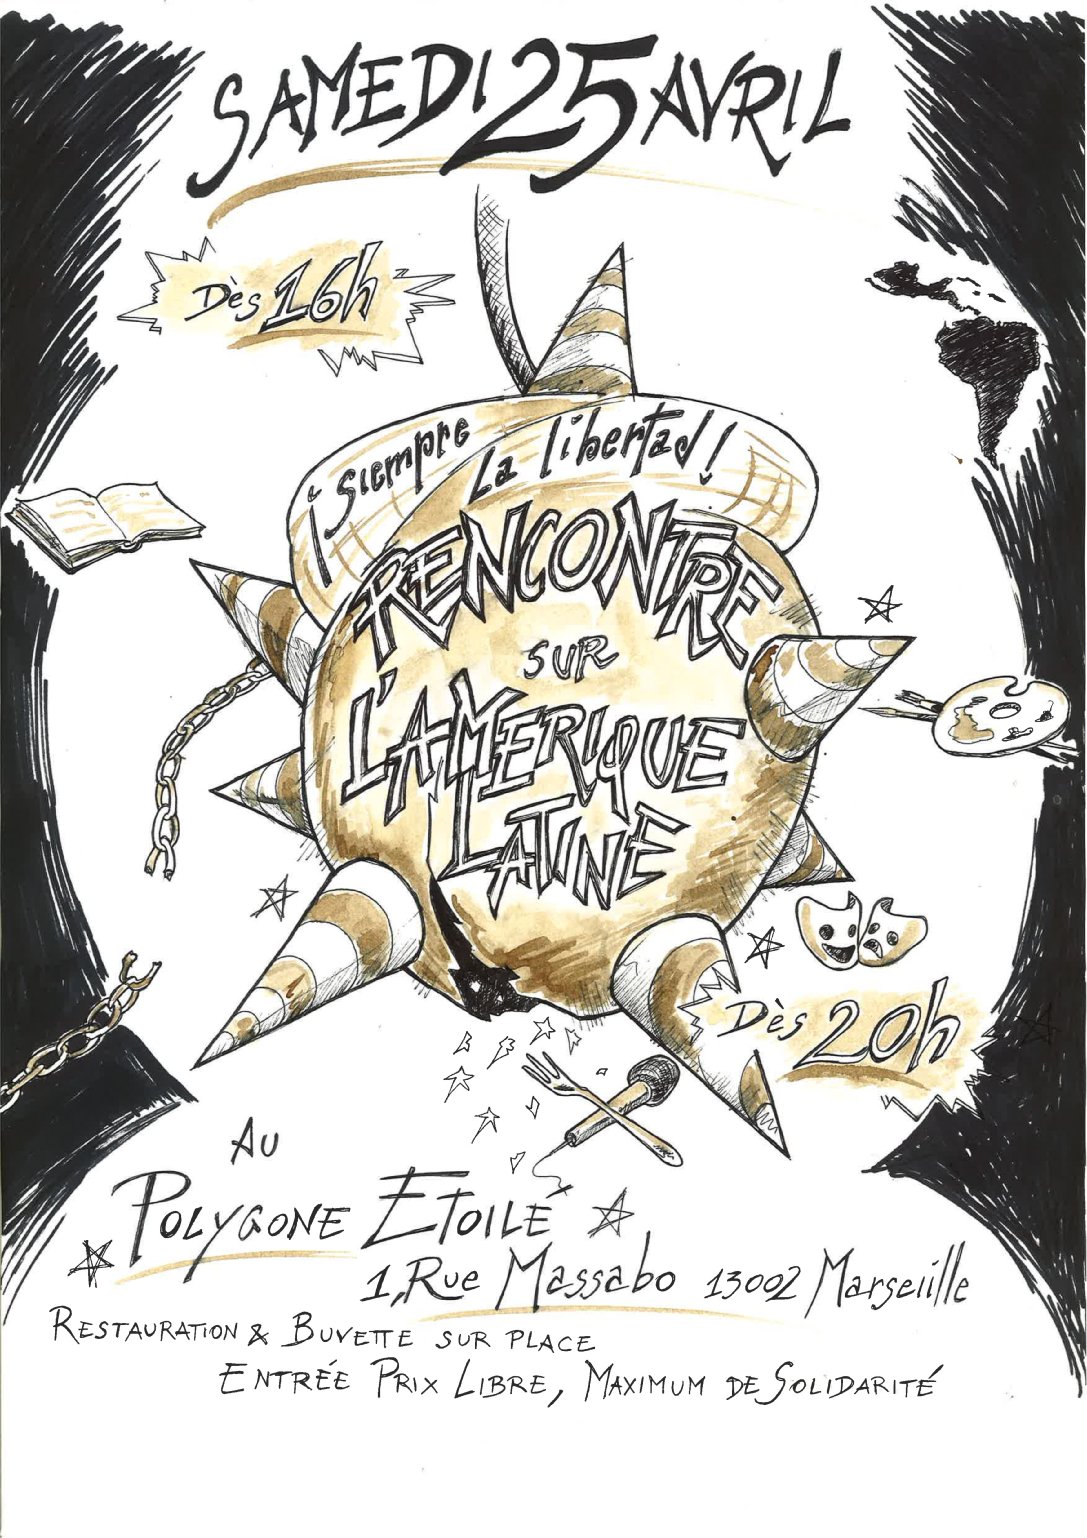 SAMEDI 25 AVRIL
Dès 16h
¡ siempre
La libertad !
RENCONTRE
SUR
L'AMERIQUE
LATINE
Dès 20h
AU
POLYGONE ETOILÉ
1, Rue Massabo 13002 Marseiille
RESTAURATION & BUVETTE SUR PLACE
ENTRÉE PRIX LIBRE, MAXIMUM DE SOLIDARITÉ